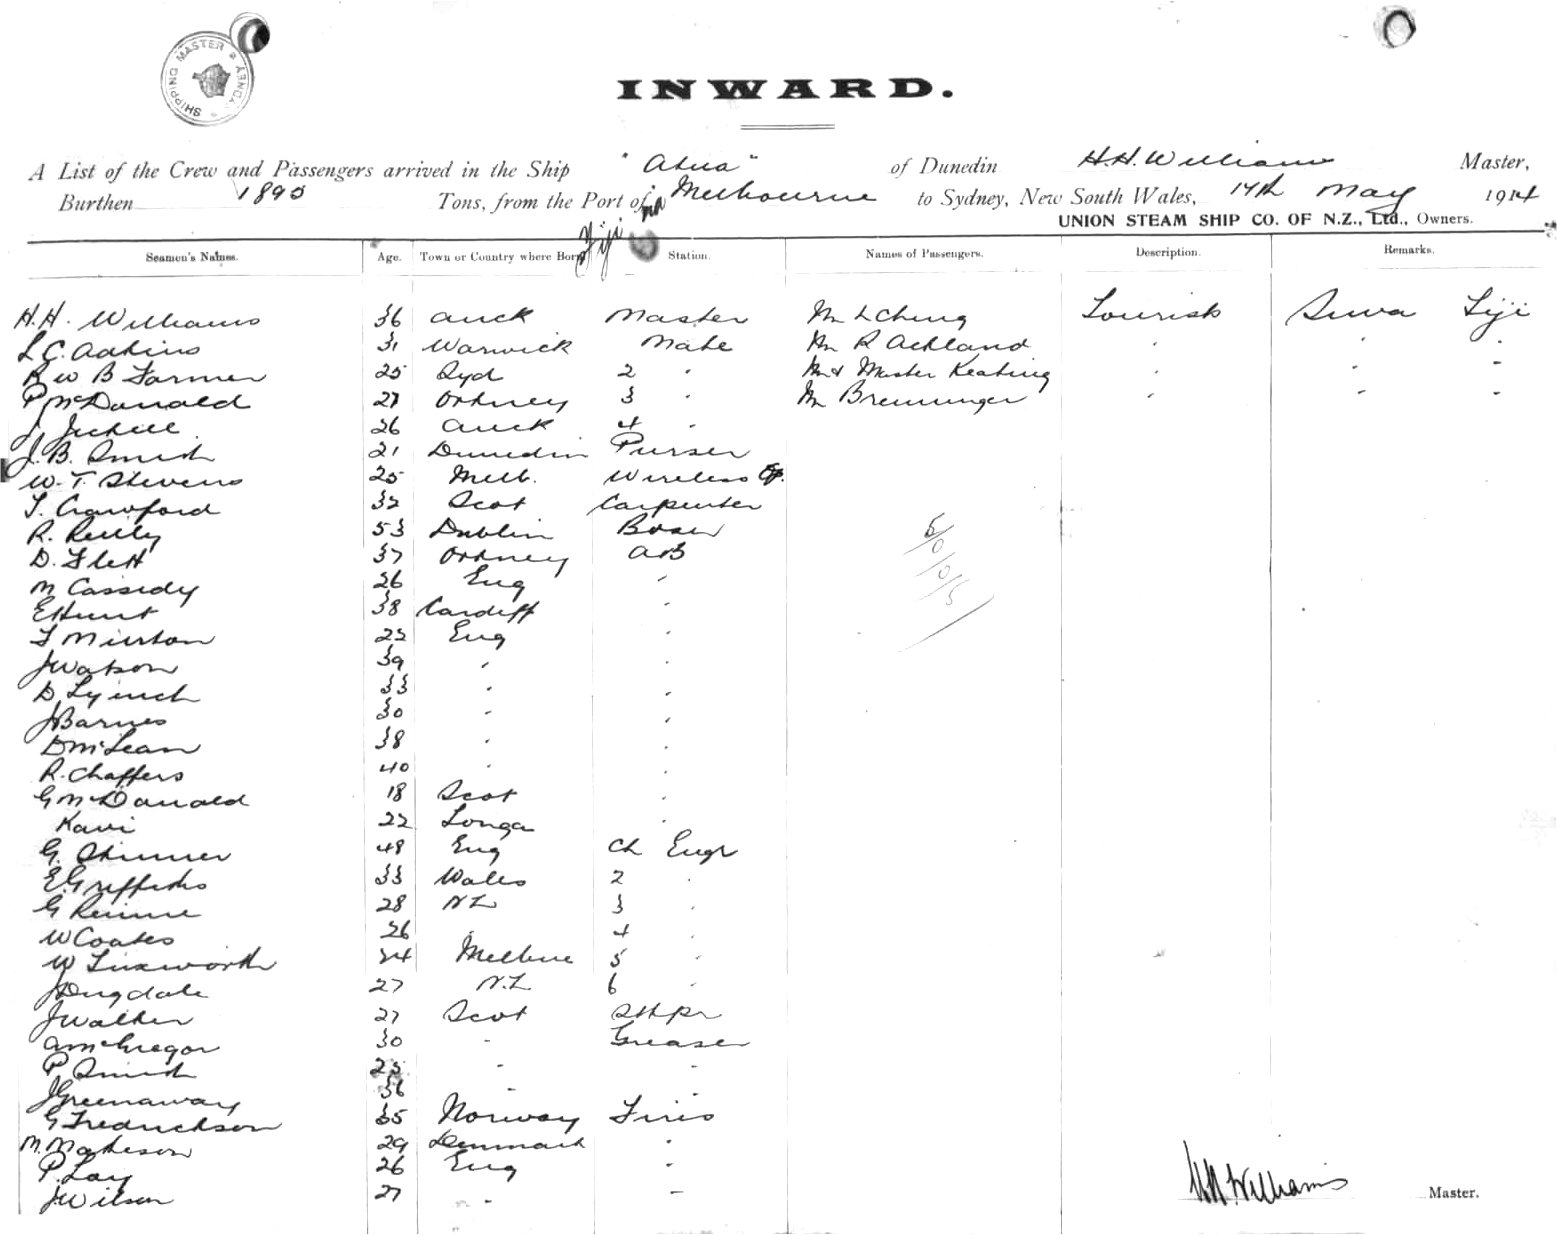 SHIPPING MASTER SYDNEY
INWARD.
A List of the Crew and Passengers arrived in the Ship "Atua" of Dunedin H.H. Williams Master,
Burthen 1895 Tons, from the Port of Melbourne via Fiji to Sydney, New South Wales, 14th May 1914
UNION STEAM SHIP CO. OF N.Z., Ltd., Owners.
Seamen's Names. Age. Town or Country where Born Station. Names of Passengers. Description. Remarks.
H.H. Williams 36 Auck Master Mr L Ching Tourist Suva Fiji
L C. Adkins 31 Warwick Mate Mr R Ackland " " "
R W B Farmer 25 Syd 2 " Mr & Master Keating " " "
P McDonald 27 Orkney 3 " Mr Breuninger " " "
J. Jechell 26 Auck 4 "
J. B. Smith 21 Dunedin Purser
W. T. Stevens 25 Melb. Wireless Op.
T. Crawford 32 Scot Carpenter
R. Reilly 53 Dublin Bosun
D. Flett 37 Orkney AB
M Cassidy 26 Eng "
E Hunt 38 Cardiff "
T Minton 22 Eng "
J Watson 39 " "
D Lynch 33 " "
J Barnes 30 " "
D McLean 38 " "
R. Chaffers 40 " "
G McDonald 18 Scot "
Kavi 22 Tonga "
G. Skinner 48 Eng Ch Engr
E. Griffiths 33 Wales 2 "
G Rennie 28 NZ 3 "
W Coates 26 4 "
W Linxworth 24 Melbne 5 "
J Dugdale 27 N.Z 6 "
J Walker 27 Scot Stkpr
A McGregor 30 " Greaser
P Smith 25 " "
J Greenaway 36 " "
G Fredrickson 35 Norway Fires
M. Matheson 29 Denmark "
P. Lay 26 Eng "
J. Wilson 27 " "
H H Williams Master.